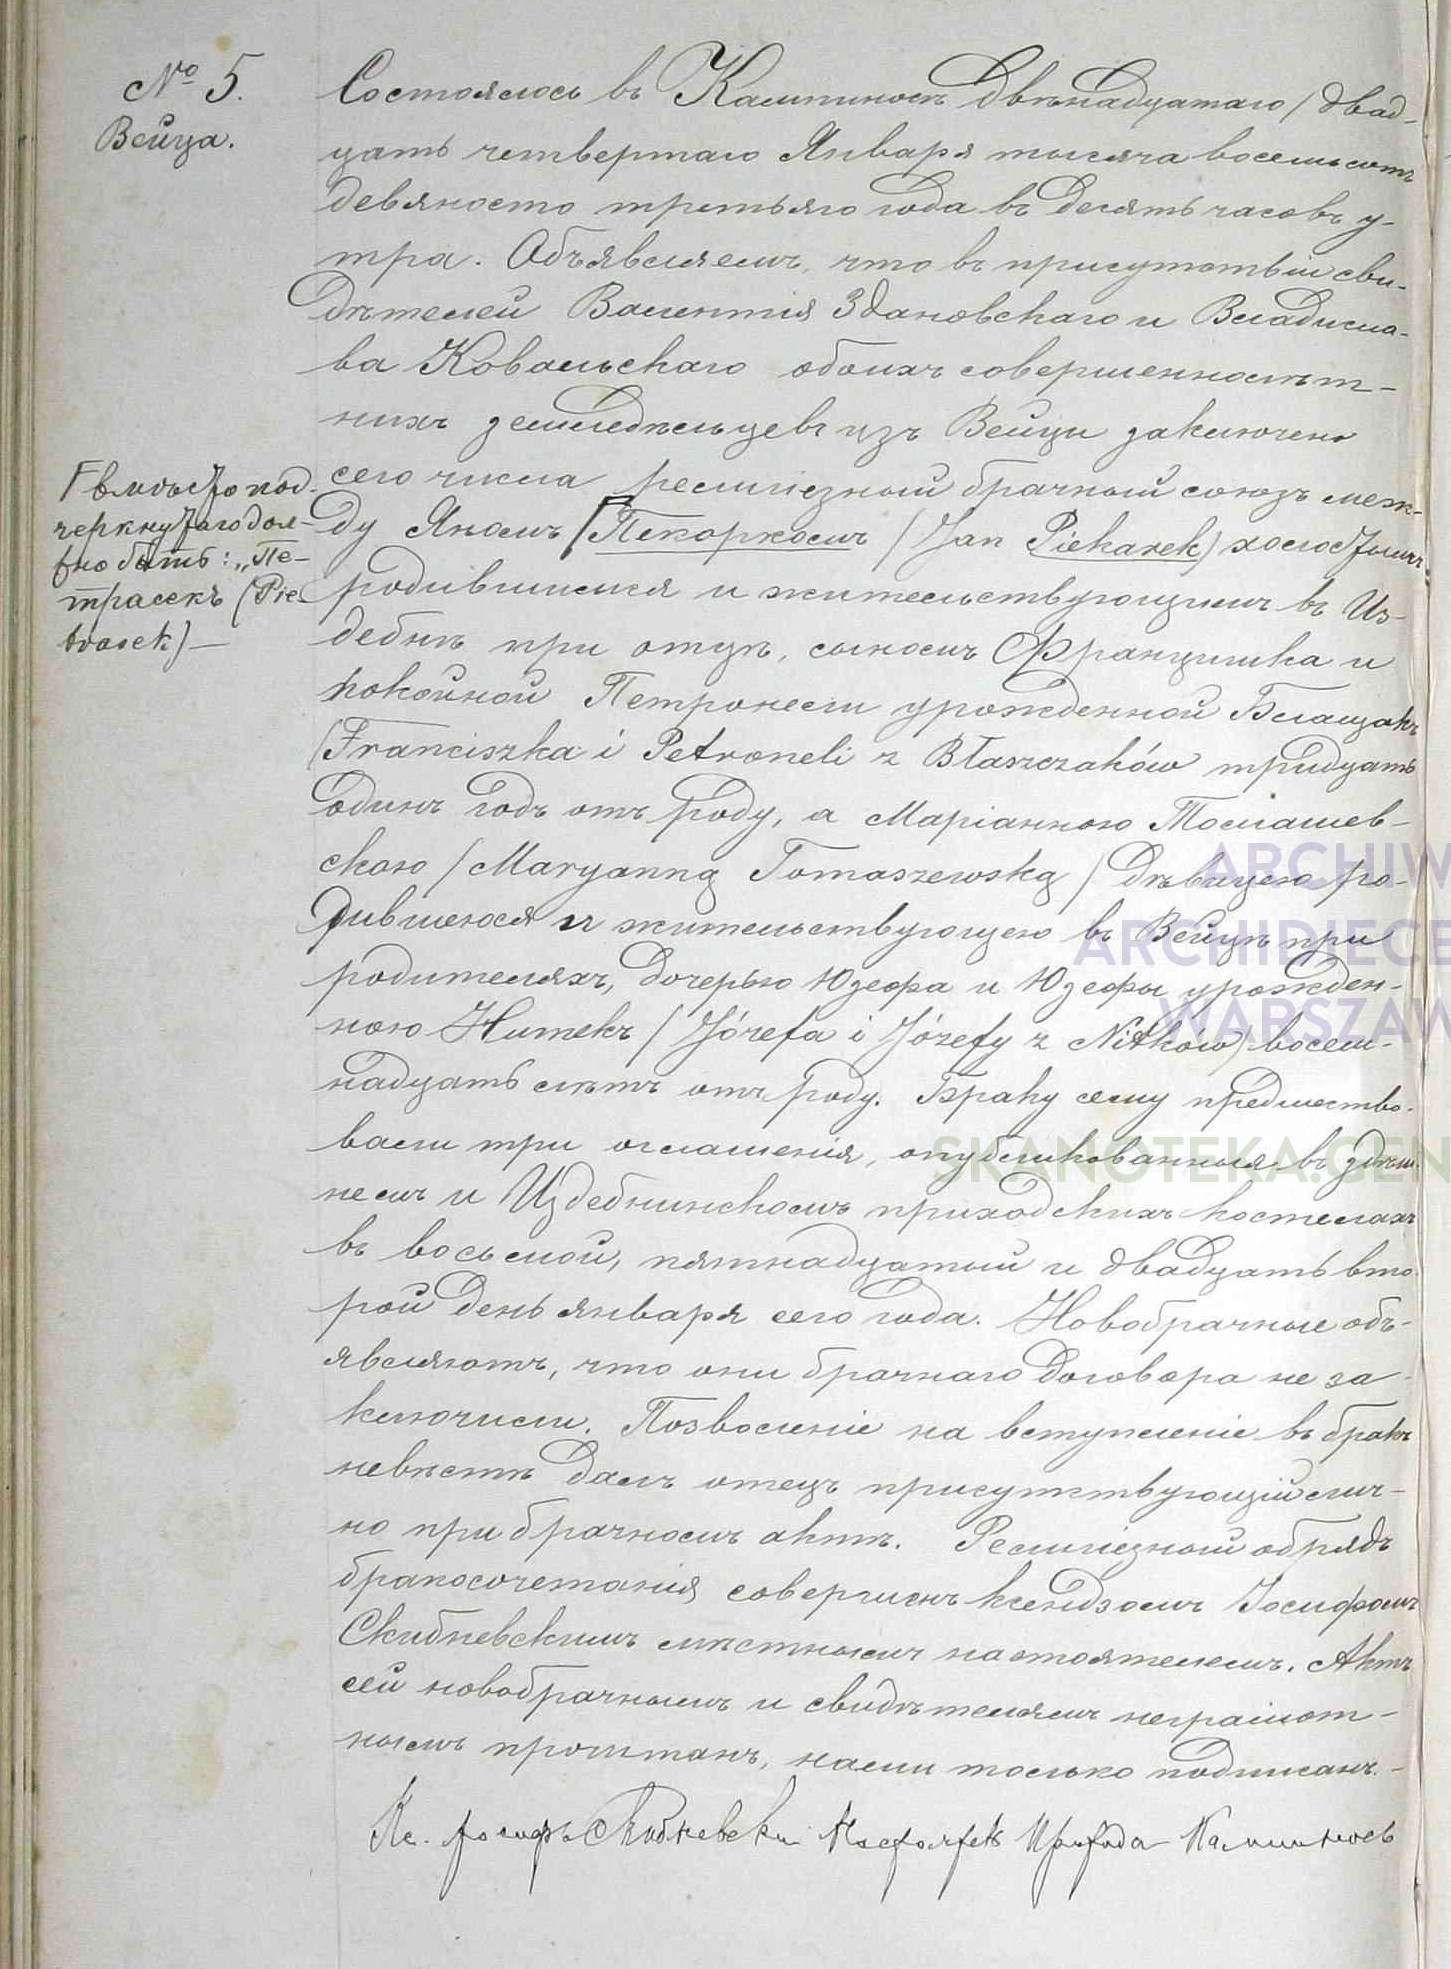 № 5.
Вейца.
Состоялось въ Кампиносѣ двѣнадцатаго / двад-
цать четвертаго Января тысяча восемьсотъ
девяносто третьяго года въ десять часовъ у-
тра. Объявляемъ, что въ присутствіи сви-
дѣтелей Валентія Здановскаго и Владисла-
ва Ковальскаго обоихъ совершеннолѣт-
нихъ земледѣльцевъ изъ Вейцы заключенъ
сего числа религіозный брачный союзъ меж-
ду Яномъ Пекоркомъ / Jan Piekarek) холостымъ
родившимся и жительствующимъ въ Из-
дебнѣ при отцѣ, сыномъ Францишка и
покойной Петронели урожденной Блащакъ
(Franciszka i Petroneli z Błaszczaków тридцать
одинъ годъ отъ роду, а Маріанною Томашев-
скою / Maryanną Tomaszewską / дѣвицею ро-
дившеюся и жительствующею въ Вейцѣ при
родителяхъ, дочерью Юзефа и Юзефы урожден-
ною Нитекъ / Józefa i Józefy z Nitków) восем-
надцать лѣтъ отъ роду. Браку сему предшество-
вали три оглашенія, опубликованныя въ здѣш-
немъ и Издебнинскомъ приходскихъ костелахъ
въ восьмой, пятнадцатый и двадцать вто-
рой день января сего года. Новобрачные объ-
являютъ, что они брачнаго договора не за-
ключили. Позволеніе на вступленіе въ бракъ
невѣстѣ далъ отецъ присутствующій лич-
но при брачномъ актѣ. Религіозный обрядъ
бракосочетанія совершенъ ксендзомъ Іосифомъ
Скибневскимъ мѣстнымъ настоятелемъ. Актъ
сей новобрачнымъ и свидѣтелямъ неграмот-
нымъ прочитанъ, нами только подписанъ.-
Кс. Іосифъ Скибневски Настоятель Прихода Кампиносъ
Г вмѣсто под-
черкнутаго дол-
жно быть: „Пе-
трасекъ (Pie-
trasek)—
ARCHIW
ARCHIDIECE
WARSZAW
SKANOTEKA.GEN